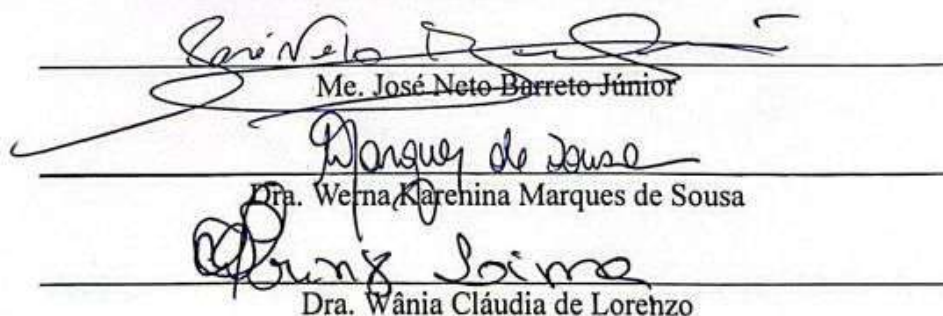 José Neto
Me. José Neto Barreto Júnior
Marques de Sousa
Dra. Werna Karenina Marques de Sousa
Dra. Wânia Cláudia de Lorenzo